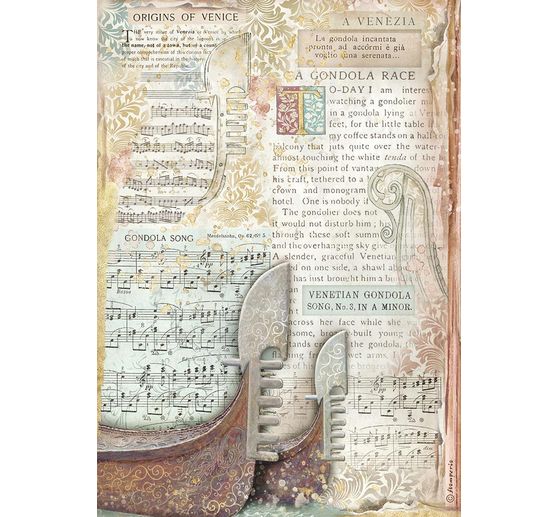 ORIGINS OF VENICE
THE very name of Venezia or Venice by which
we now know the city of the lagoons is
the name, not of a town, but of a
proper comprehension of this
of much that is essential in the history
of the city and of the Republic.
A VENEZIA
La gondola incantata
pronta ad accórmi è già
voglio una serenata...
A GONDOLA RACE
TO-DAY I am interes
watching a gondolier m
in a gondola lying at Ve
feet, for the little table
my coffee stands on a half-
balcony that juts quite over the water
almost touching the white tenda of the
From this point of vantag
his craft, tethered to a
crown and monogram
hotel. One is nobody if
The gondolier does not
it would not disturb him; h
through these soft summ
and the overhanging sky give
A slender, graceful Venetian
ed on one side, a shawl ab
has just
GONDOLA SONG
Mendelssohn, Op. 62, Nº 5
VENETIAN GONDOLA
SONG, No. 3, IN A MINOR.
across her face while she
some, bronze-built young fe
stands
the gondola,
wet arms. I
of his
© stamperia